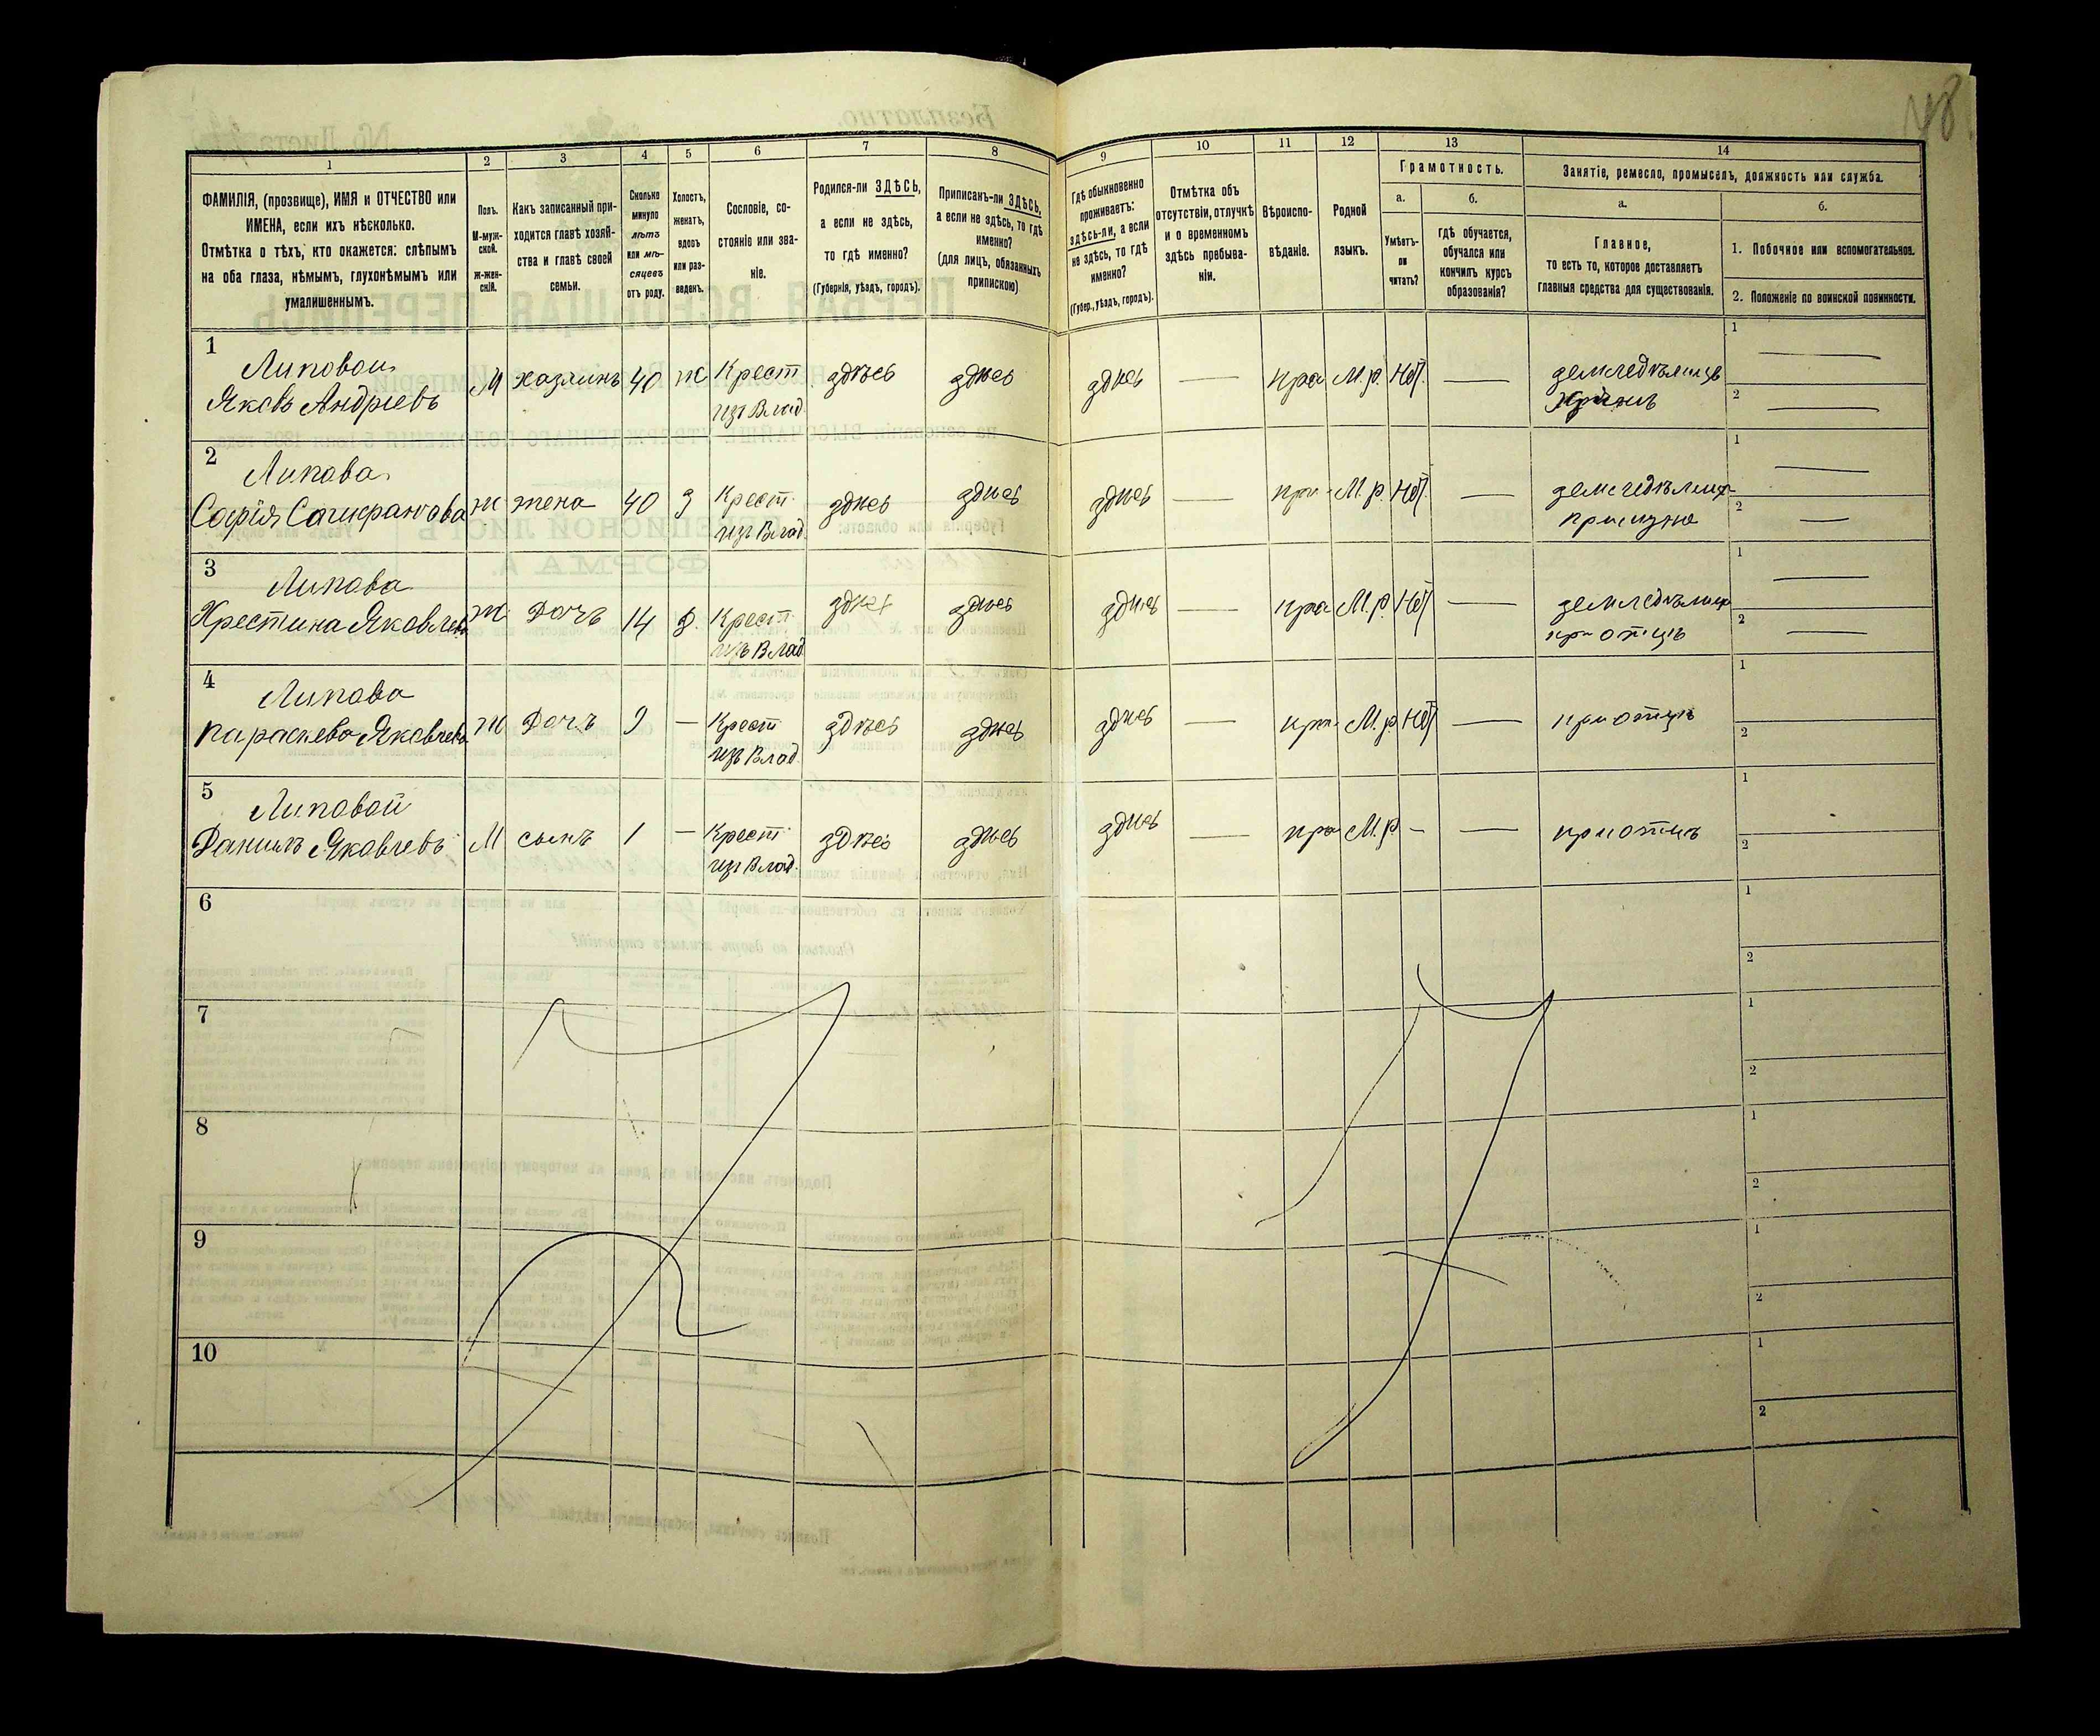 48
1 2 3 4 5 6 7 8 9 10 11 12 13 14
ФАМИЛІЯ, (прозвище), ИМЯ и ОТЧЕСТВО или
ИМЕНА, если ихъ нѣсколько.
Отмѣтка о тѣхъ, кто окажется: слѣпымъ
на оба глаза, нѣмымъ, глухонѣмымъ или
умалишеннымъ.
Полъ.
М-муж-
ской.
Ж-жен-
скій.
Какъ записанный при-
ходится главѣ хозяй-
ства и главѣ своей
семьи.
Сколько
минуло
лѣтъ
или мѣ-
сяцевъ
отъ роду.
Холостъ,
женатъ,
вдовъ
или раз-
веденъ.
Сословіе, со-
стояніе или зва-
ніе.
Родился-ли ЗДѢСЬ,
а если не здѣсь,
то гдѣ именно?
(Губернія, уѣздъ, городъ).
Приписанъ-ли ЗДѢСЬ,
а если не здѣсь, то гдѣ
именно?
(для лицъ, обязанныхъ
припискою)
Гдѣ обыкновенно
проживаетъ:
здѣсь-ли, а если
не здѣсь, то гдѣ
именно?
(Губер., уѣздъ, городъ).
Отмѣтка объ
отсутствіи, отлучкѣ
и о временномъ
здѣсь пребыва-
ніи.
Вѣроиспо-
вѣданіе.
Родной
языкъ.
Грамотность.
а.
Умѣетъ-
ли
читать?
б.
гдѣ обучается,
обучался или
кончилъ курсъ
образованія?
Занятіе, ремесло, промыселъ, должность или служба.
а.
Главное,
то есть то, которое доставляетъ
главныя средства для существованія.
б.
1. Побочное или вспомогательное.
2. Положеніе по воинской повинности.
1 Липовой
Яковъ Андріевъ
М хазяинъ 40 ж Крест
изъ Влад.
здѣсь здѣсь здѣсь — пра М.р. Нѣт —
земледѣлицъ
1 —
2 —
2 Липова
Софія
ж жена 40 з Крест.
изъ Влад
здѣсь здѣсь здѣсь — пра М.р. Нѣт —
при мужѣ
1 —
2 —
3 Липова
Хрестина Яковлев
ж Дочъ 14 д. Крест.
изъ Влад
здѣсь здѣсь здѣсь — пра М.р. Нѣт —
при отцѣ
1 —
2 —
4 Липова
Параскева Яковлев
ж Дочъ 9 — Крест
изъ Влад.
здѣсь здѣсь здѣсь — пра М.р. Нѣт —
при отцѣ
1
2
5 Липовой
Данилъ Яковлевъ
М сынъ 1 — Крест
изъ Влад.
здѣсь здѣсь здѣсь — пра М.р. - —
при отцѣ
1
2
6
1
2
7
1
2
8
1
2
9
1
2
10
1
2